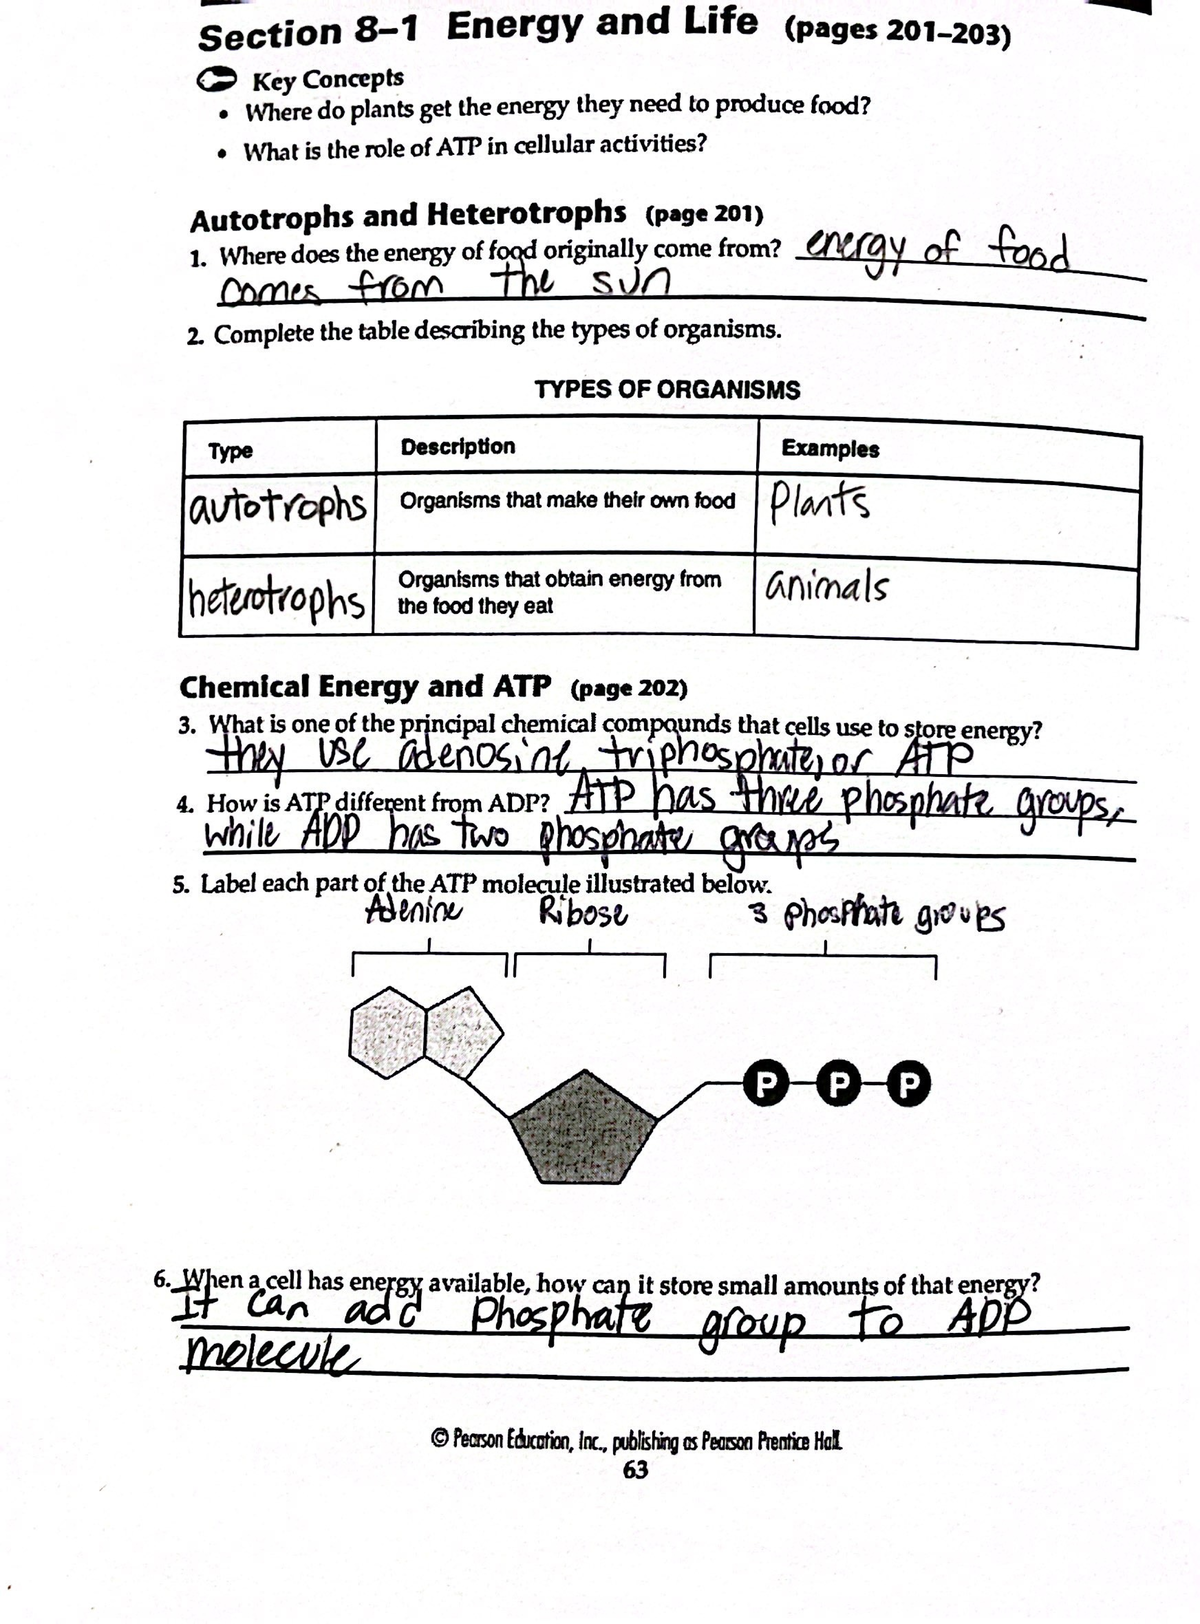 Section 8–1 Energy and Life (pages 201–203)
Key Concepts
• Where do plants get the energy they need to produce food?
• What is the role of ATP in cellular activities?
Autotrophs and Heterotrophs (page 201)
1. Where does the energy of food originally come from? energy of food
comes from the sun
2. Complete the table describing the types of organisms.
TYPES OF ORGANISMS
Type Description Examples
autotrophs Organisms that make their own food Plants
heterotrophs Organisms that obtain energy from the food they eat animals
Chemical Energy and ATP (page 202)
3. What is one of the principal chemical compounds that cells use to store energy?
they use adenosine triphosphate, or ATP
4. How is ATP different from ADP? ATP has three phosphate groups,
while ADP has two phosphate groups
5. Label each part of the ATP molecule illustrated below.
Adenine Ribose 3 phosphate groups
P P P
6. When a cell has energy available, how can it store small amounts of that energy?
It can add phosphate group to ADP
molecule
© Pearson Education, Inc., publishing as Pearson Prentice Hall.
63